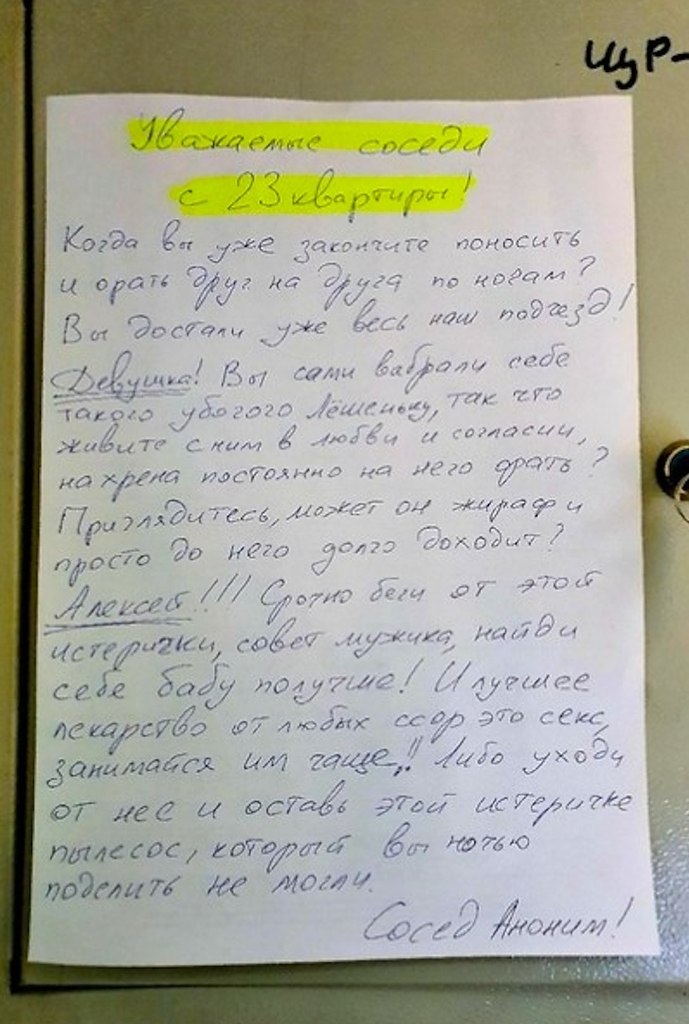 ЦУР-
Уважаемые соседи
с 23 квартиры!
Когда вы уже закончите поносить
и орать друг на друга по ночам?
Вы достали уже весь наш подъезд!
Девушка! Вы сами выбрали себе
такого убогого Лёшеньку, так что
живите с ним в любви и согласии,
нахрена постоянно на него орать?
Приглядитесь, может он жираф и
просто до него долго доходит?
Алексей!!! Срочно беги от этой
истерички, совет мужика, найди
себе бабу получше! И лучшее
лекарство от любых ссор это секс,
занимайся им чаще,!! Либо уходи
от нее и оставь этой истеричке
пылесос, который вы ночью
поделить не могли.
Сосед Аноним!